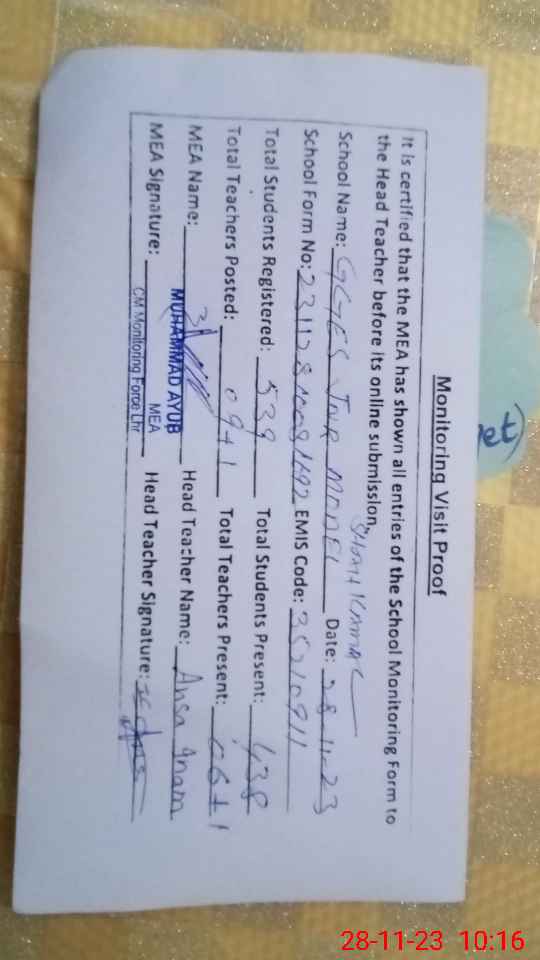 Monitoring Visit Proof
It is certified that the MEA has shown all entries of the School Monitoring Form to
the Head Teacher before its online submission.
SHAH KAMAL
School Name: GGES JNR MODEL Date: 28-11-23
School Form No: EMIS Code: 35210911
Total Students Registered: 539 Total Students Present: 438
Total Teachers Posted: 09+1 Total Teachers Present: 06+1
MEA Name: Head Teacher Name: Ansa Anam
MUHAMMAD AYUB
MEA
MEA Signature: Head Teacher Signature:
CM Monitoring Force Lhr
et)
28-11-23 10:16